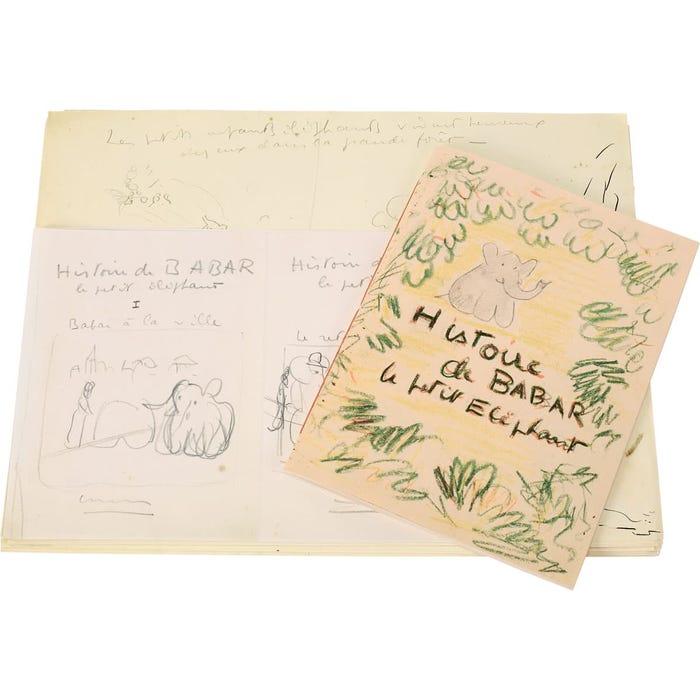 Les petits enfants éléphants vivent heureux
chez eux dans la grande forêt —
Histoire de BABAR
le petit éléphant
I
Babar à la ville
Histoire d
le petit
le re
Histoire
de BABAR
le petit Eléphant